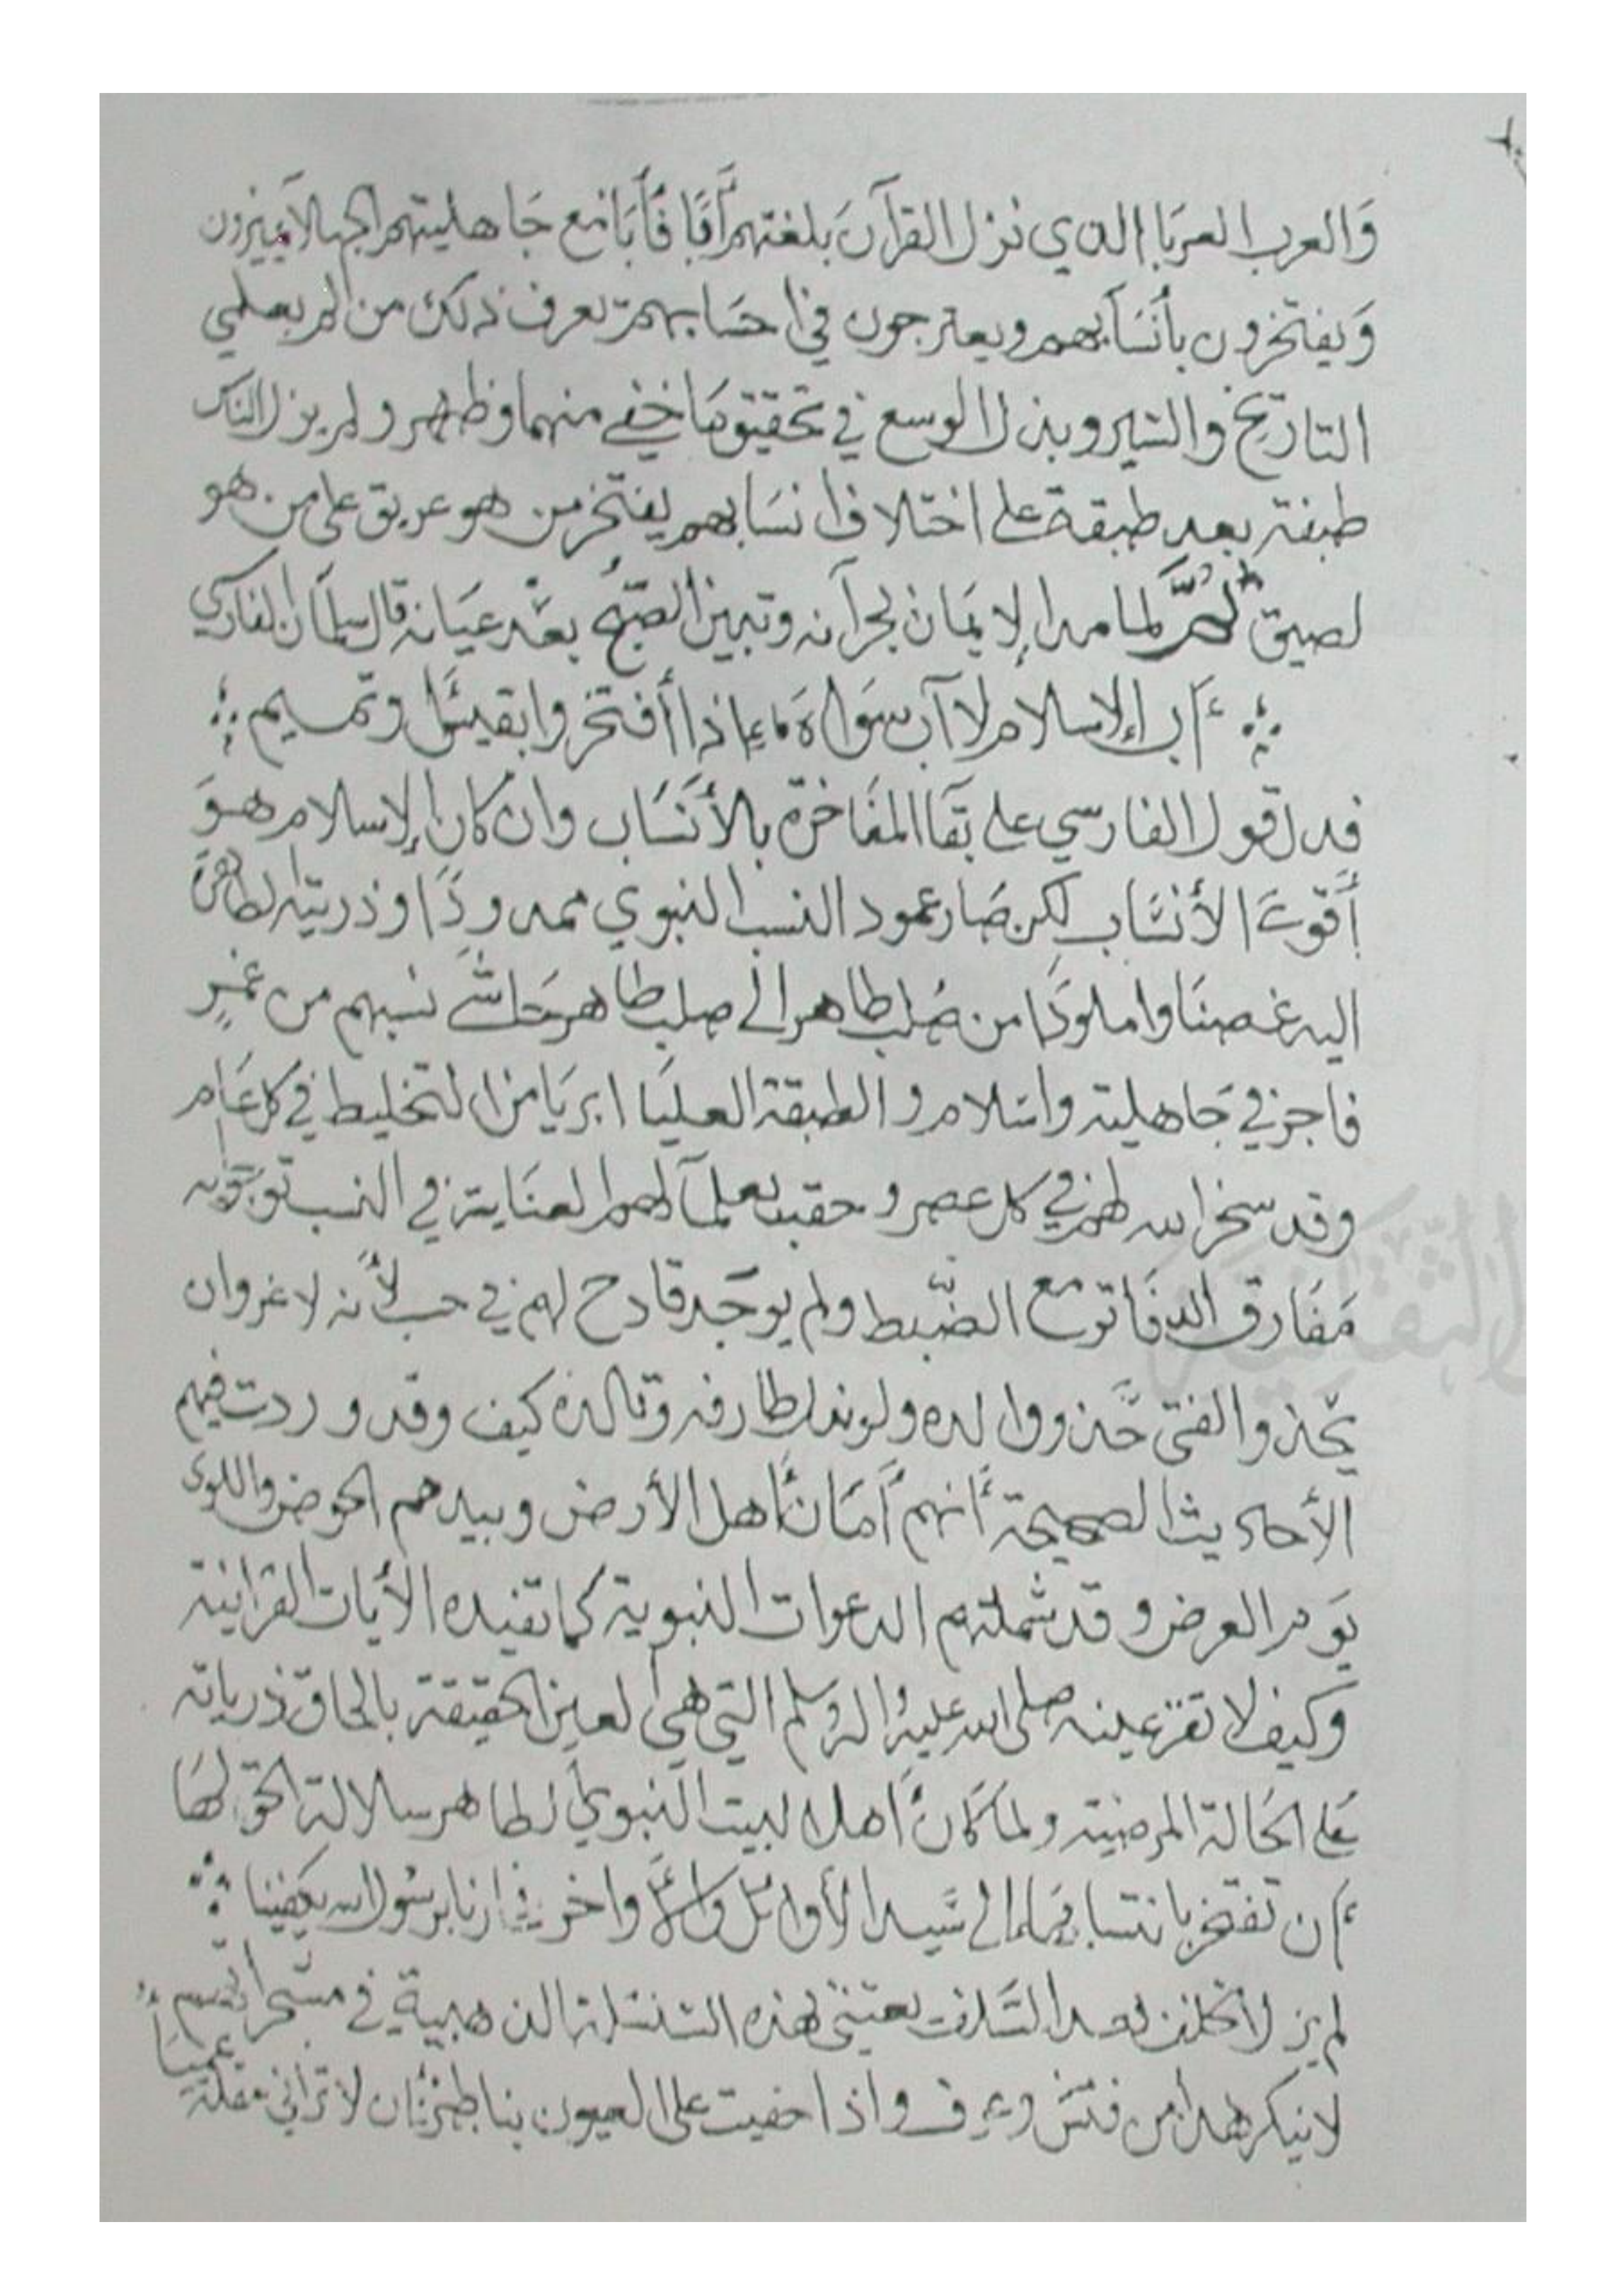 وَالعرب العربَا الذي نزل القرآن بلغتهم أبًا فأبَا مع جَاهليتهم الجهلا يميزون
وَيفتخرون بأنسَابهم ويعترجون في احسَابهم تعرف ذلك من له بعلمي
التاريخ والسّير وبذل الوسع في تحقيق مَا خفي منهما وظهر ولم يزل الناس
طبقة بعد طبقة على اختلاف انسَابهم يفتخر من هو عريق على من هو
لصيق ثمّ لما مد الإيمَان بجرآنه وتبين الصّبح بعَد عيَانه قال سلمَان الفارسي
أبي الإسلام لا أب سوَاه إذا أفتخروا بقيسٍ وتميم
فدل قول الفارسي على بقَا المفَاخرة بالأنسَاب وان كان الإسلام هوَ
أقوىَ الأنسَاب لكن صَار عمود النسب النبوي ممدودًا وذريته الطاهرة
اليه غصنَا واملودًا من صُلب طاهر الى صلب طاهر حَاشى نسبهم من غمز
فاجر في جَاهلية واسلام والطبقة العليَا ابريَا من التخليط في كل عَام
وقد سخر الله لهم في كل عصر وحقب علمآ لهم العنَاية في النسب
مَفَارق الدفَاتر مع الضّبط ولم يوجَد قادح لهم في حسب لأنه لا غروان
يحذو الفتى حَذو والده كيف وقد وردت فيهم
الأحاديث الصحيحة أنهم أمَان أهل الأرض وبيدهم الحوض واللوى
يوَم العرض وقد شملتهم الدعوات النبوية كما تفيده الأيات القرانية
وكيف لا تقر عينه صلى الله عليه واله وسلم التي هي العين الحقيقة بالحاق ذرياته
عَلى الحَالة المرضية ولما كان أهل البيت النبوي الطاهر سلالة الحق لهَا
أن تفتخر بانتسابها الى سَيد الأوائل والأواخر برسُول الله يكفينا
لم يزل الخلف بعد السَلف يعتني بهذه السَلسَلة الذهبية في
لا ينكر هذا من فتش وعرف واذا خفيت على العيون بناظر فان لا تراني مقلة
عميَا